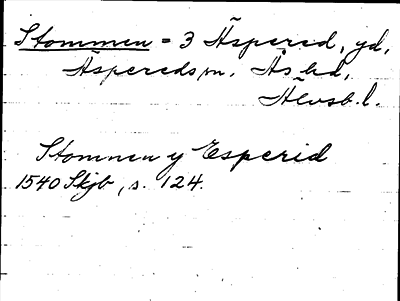 Stommen = 3 Äspered, gd,
Äspereds sn. Ås hd,
Älvsb. l.
Stomnen y Esperid
1540 Skjb, s. 124.